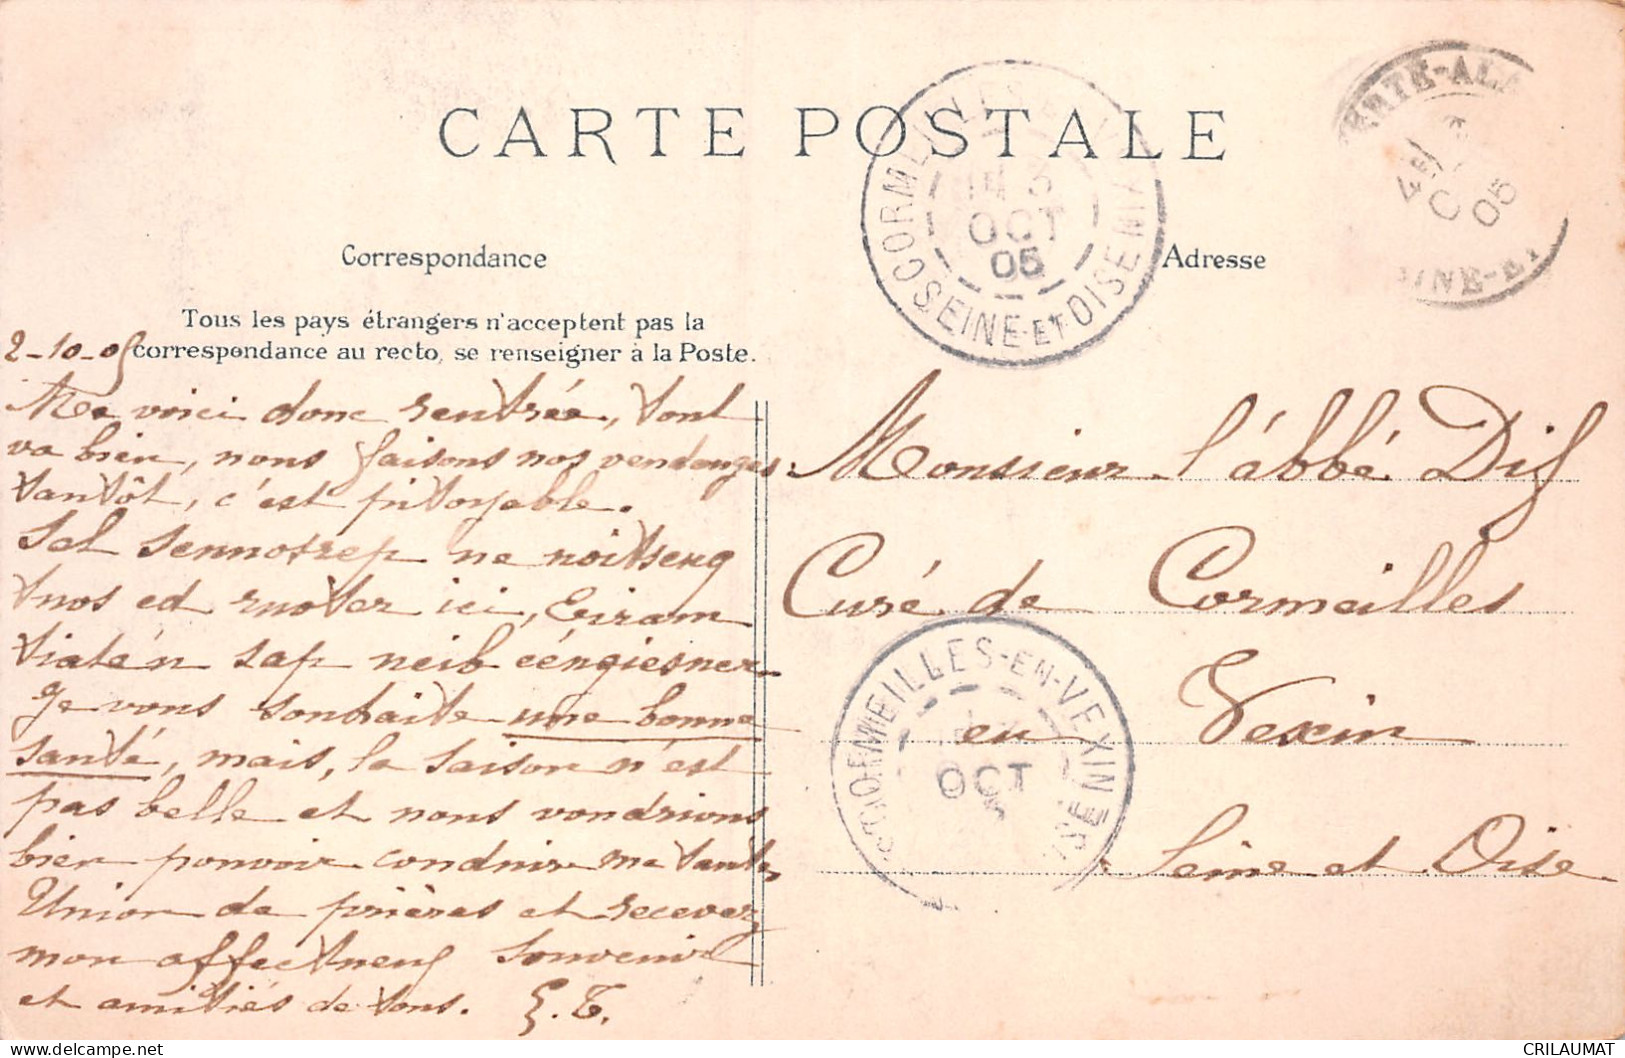 CARTE POSTALE
Correspondance
Adresse
Tous les pays étrangers n'acceptent pas la
correspondance au recto, se renseigner à la Poste.
2-10-05
Me voici donc rentrée, tout
va bien, nous faisons nos vendanges
tantôt, c'est pitoyable.
Sel sennosrep ne noitseuq
tnos ed ruoter ici, Eiram
tiaté'n sap neib eéngiesner
Je vous souhaite une bonne
santé, mais, la saison n'est
pas belle et nous voudrions
bien pouvoir conduire ma tante,
Union de prières et recevez
mon affectueux souvenir
et amitiés de tous. E.T.
Monsieur l'abbé Dif
Curé de Cormeilles
en Vexin
Seine et Oise
CORMEILLES-EN-VEXIN
3
OCT
05
SEINE-ET-OISE
FERTÉ-ALA
4E
O
05
SEINE-ET
CORMEILLES-EN-VEXIN
OCT
CRILAUMAT